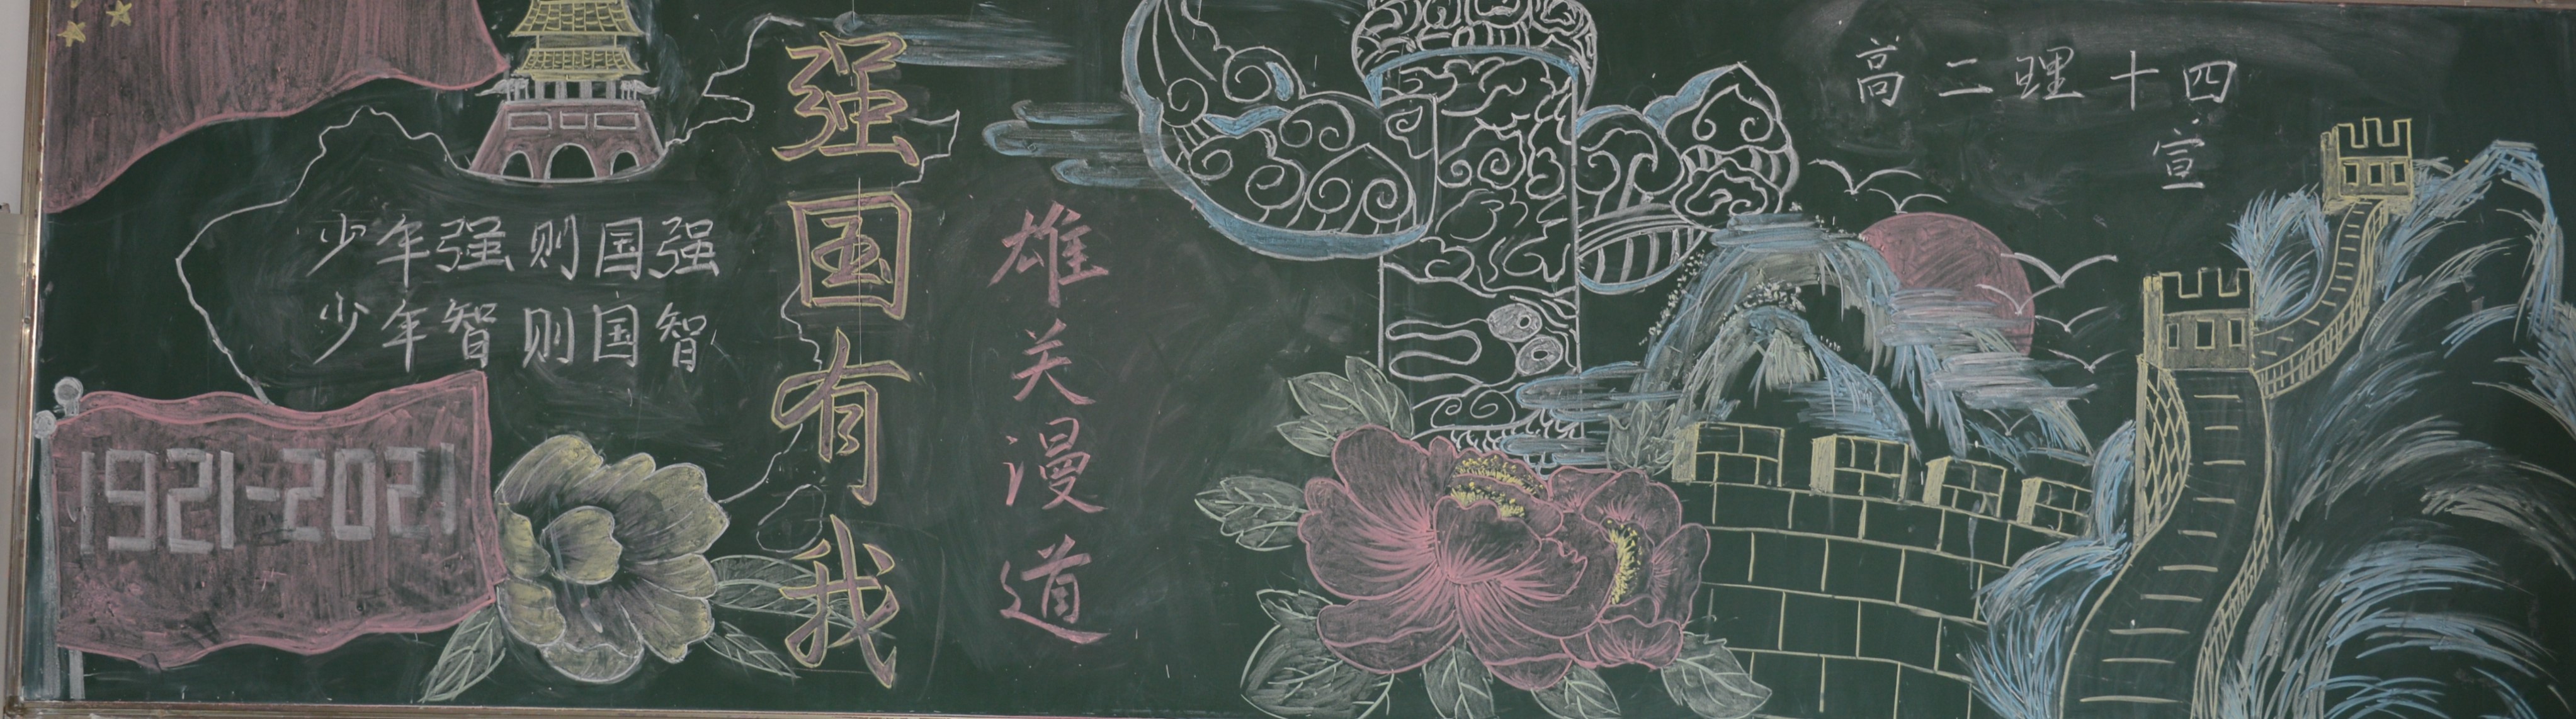 少年强则国强
少年智则国智
1921-2021
强国有我
雄关漫道
高二理十四
宣